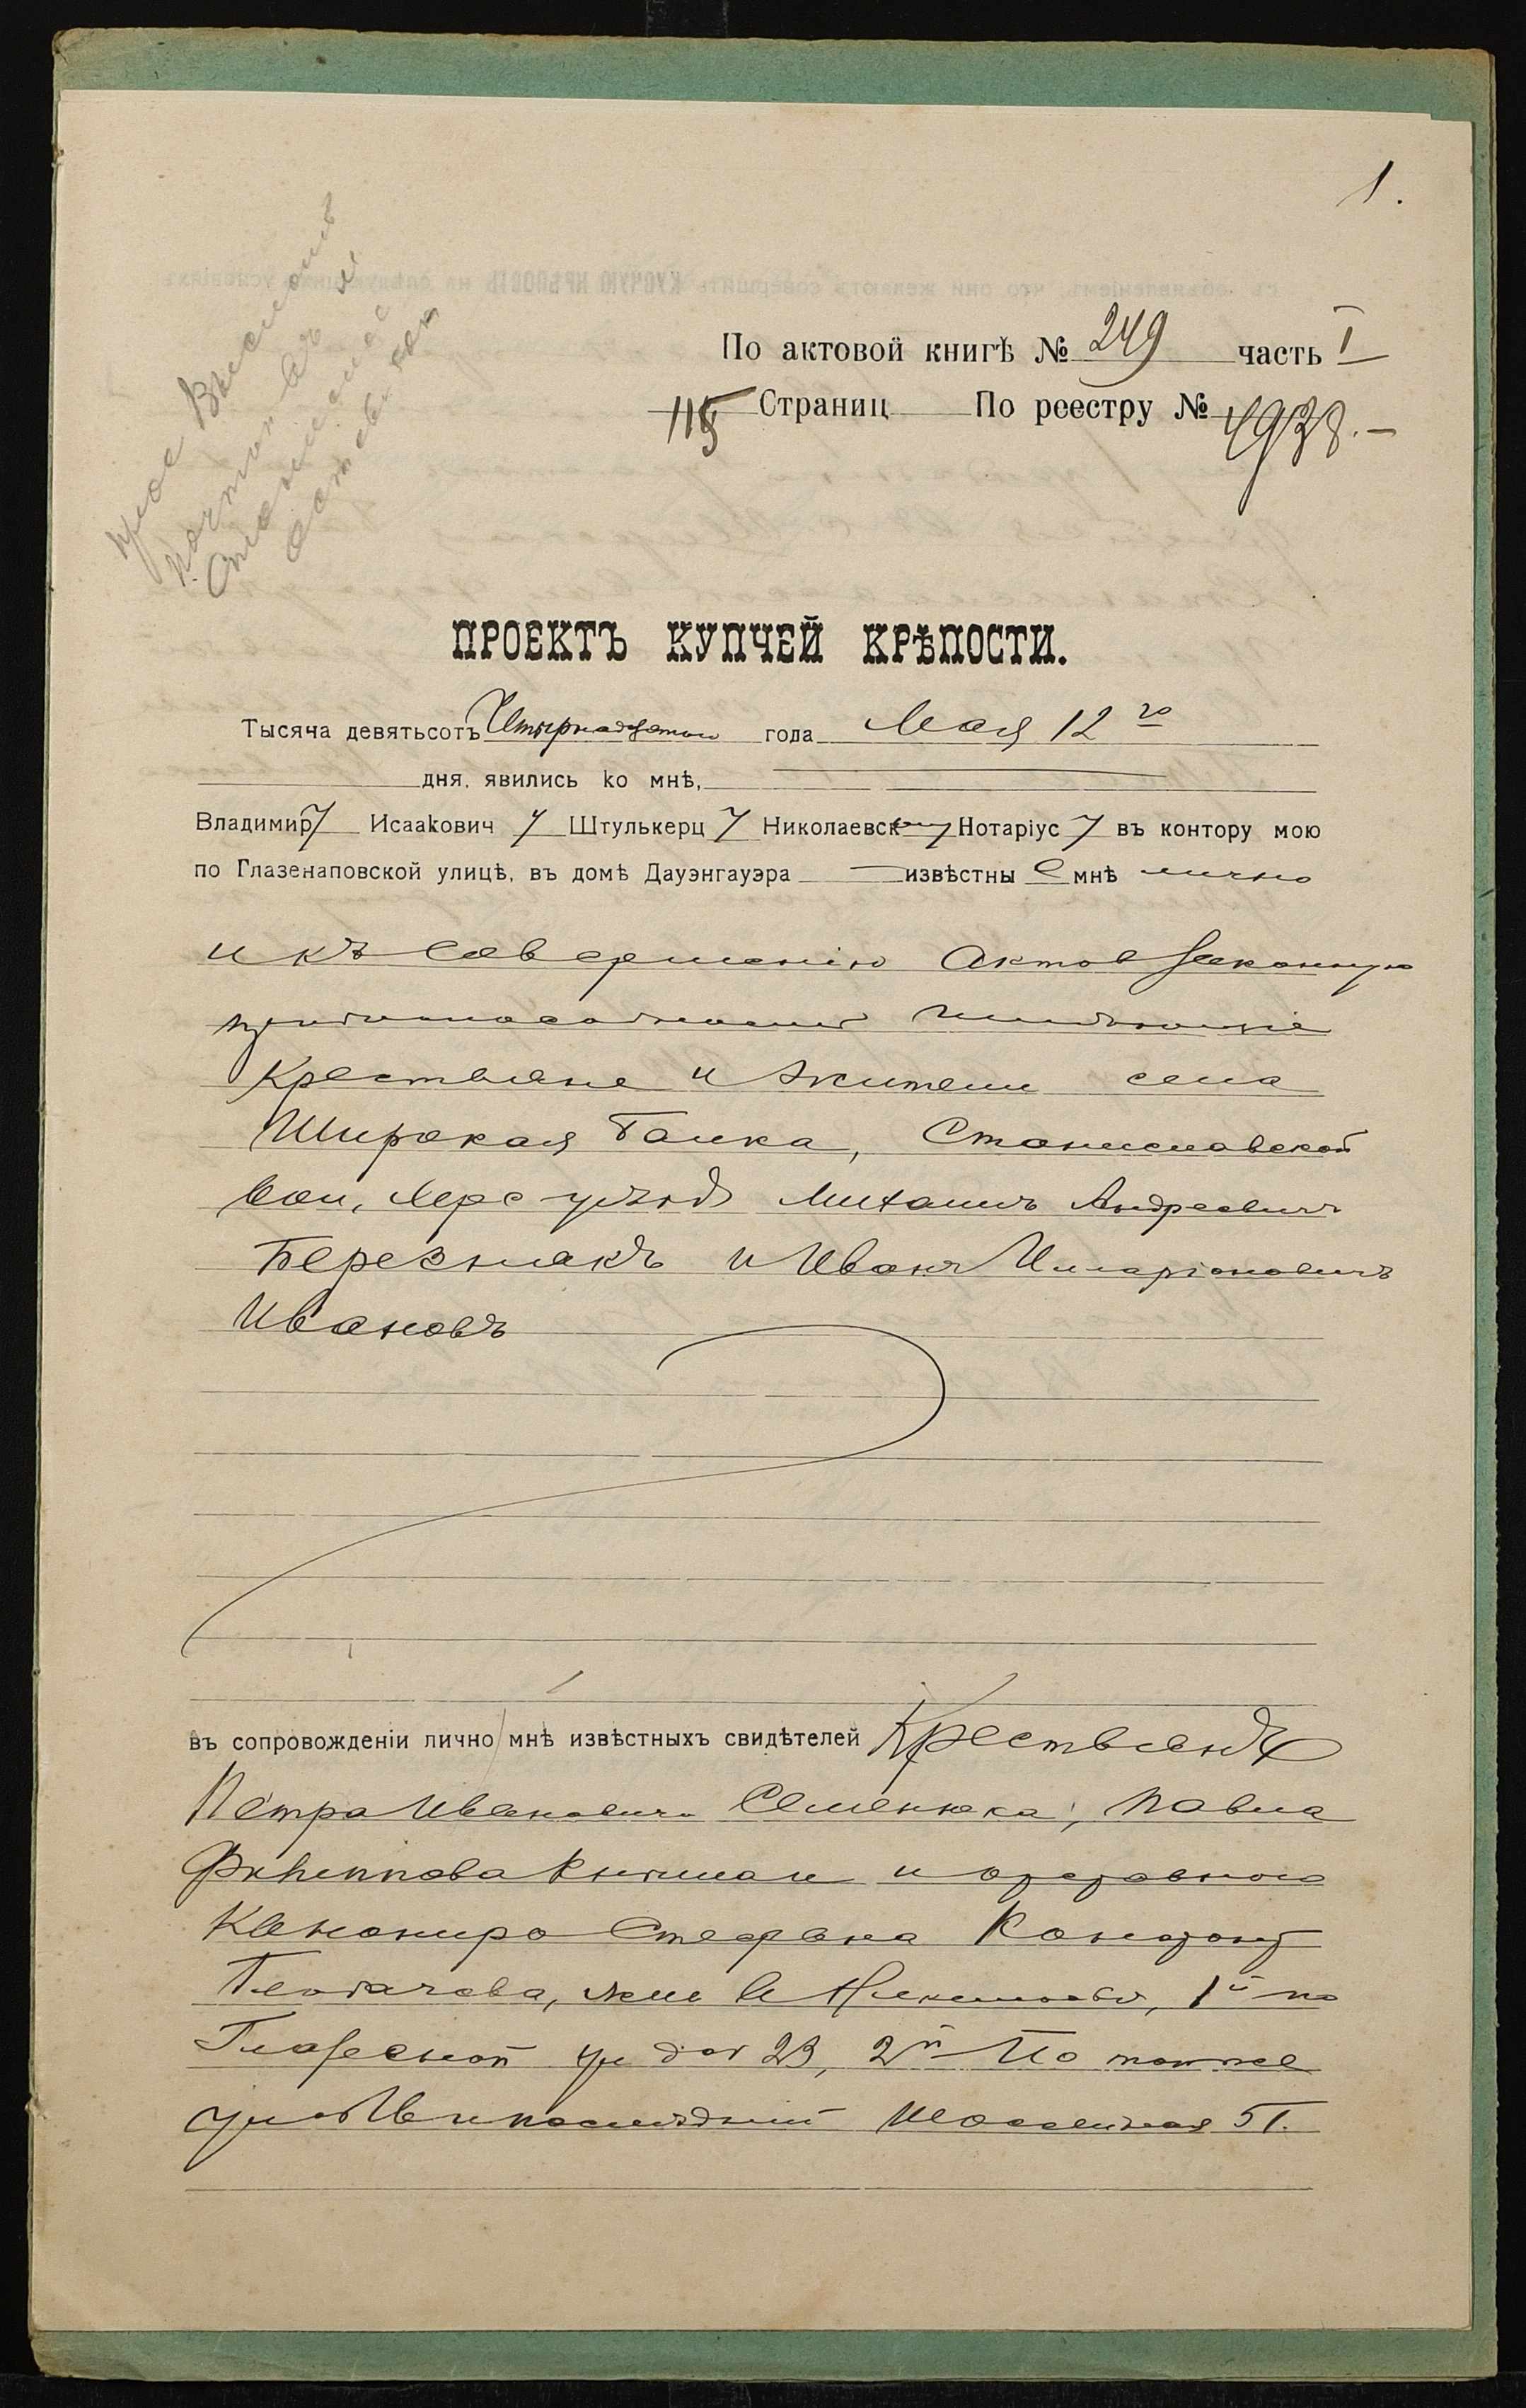 1.
По актовой книгѣ № 249 часть I
115 Страниц По реестру № 4938.—
ПРОЕКТЪ КУПЧЕЙ КРѢПОСТИ.
Тысяча девятьсотъ Четырнадцатаго года Мая 12 го
дня, явились ко мнѣ,
Владимиру Исаакович у Штулькерц у Николаевскому Нотаріус у въ контору мою
по Глазенаповской улицѣ, въ домѣ Дауэнгауэра извѣстны е мнѣ лично
и къ совершенію актов законную
Крестьяне и жители села
Широкая Балка, Станиславской
вол, Херс уѣзд Михаилъ Андреевичъ
Березнякъ и Иванъ Иларіоновичъ
Ивановъ
въ сопровожденіи лично мнѣ извѣстныхъ свидѣтелей Крестьянъ
Петра Ивановича Семенюка, Павла
и отставного
Канонира Стефана
жив в Николаевѣ, 1й по
Глазенап ул дом 23, 2й по той же
ул и послѣдній 51.